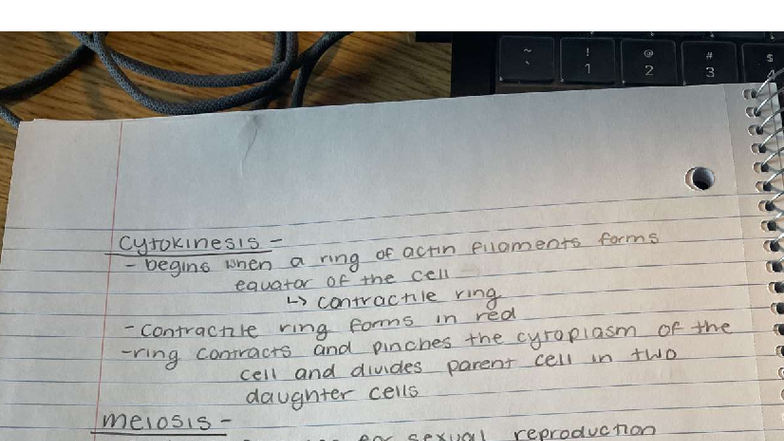 ~ ! @ # $
` 1 2 3
Cytokinesis -
- begins when a ring of actin filaments forms
equator of the cell
↳ contractile ring
- contractile ring forms in red
- ring contracts and pinches the cytoplasm of the
cell and divides parent cell in two
daughter cells
meiosis -
for sexual reproduction